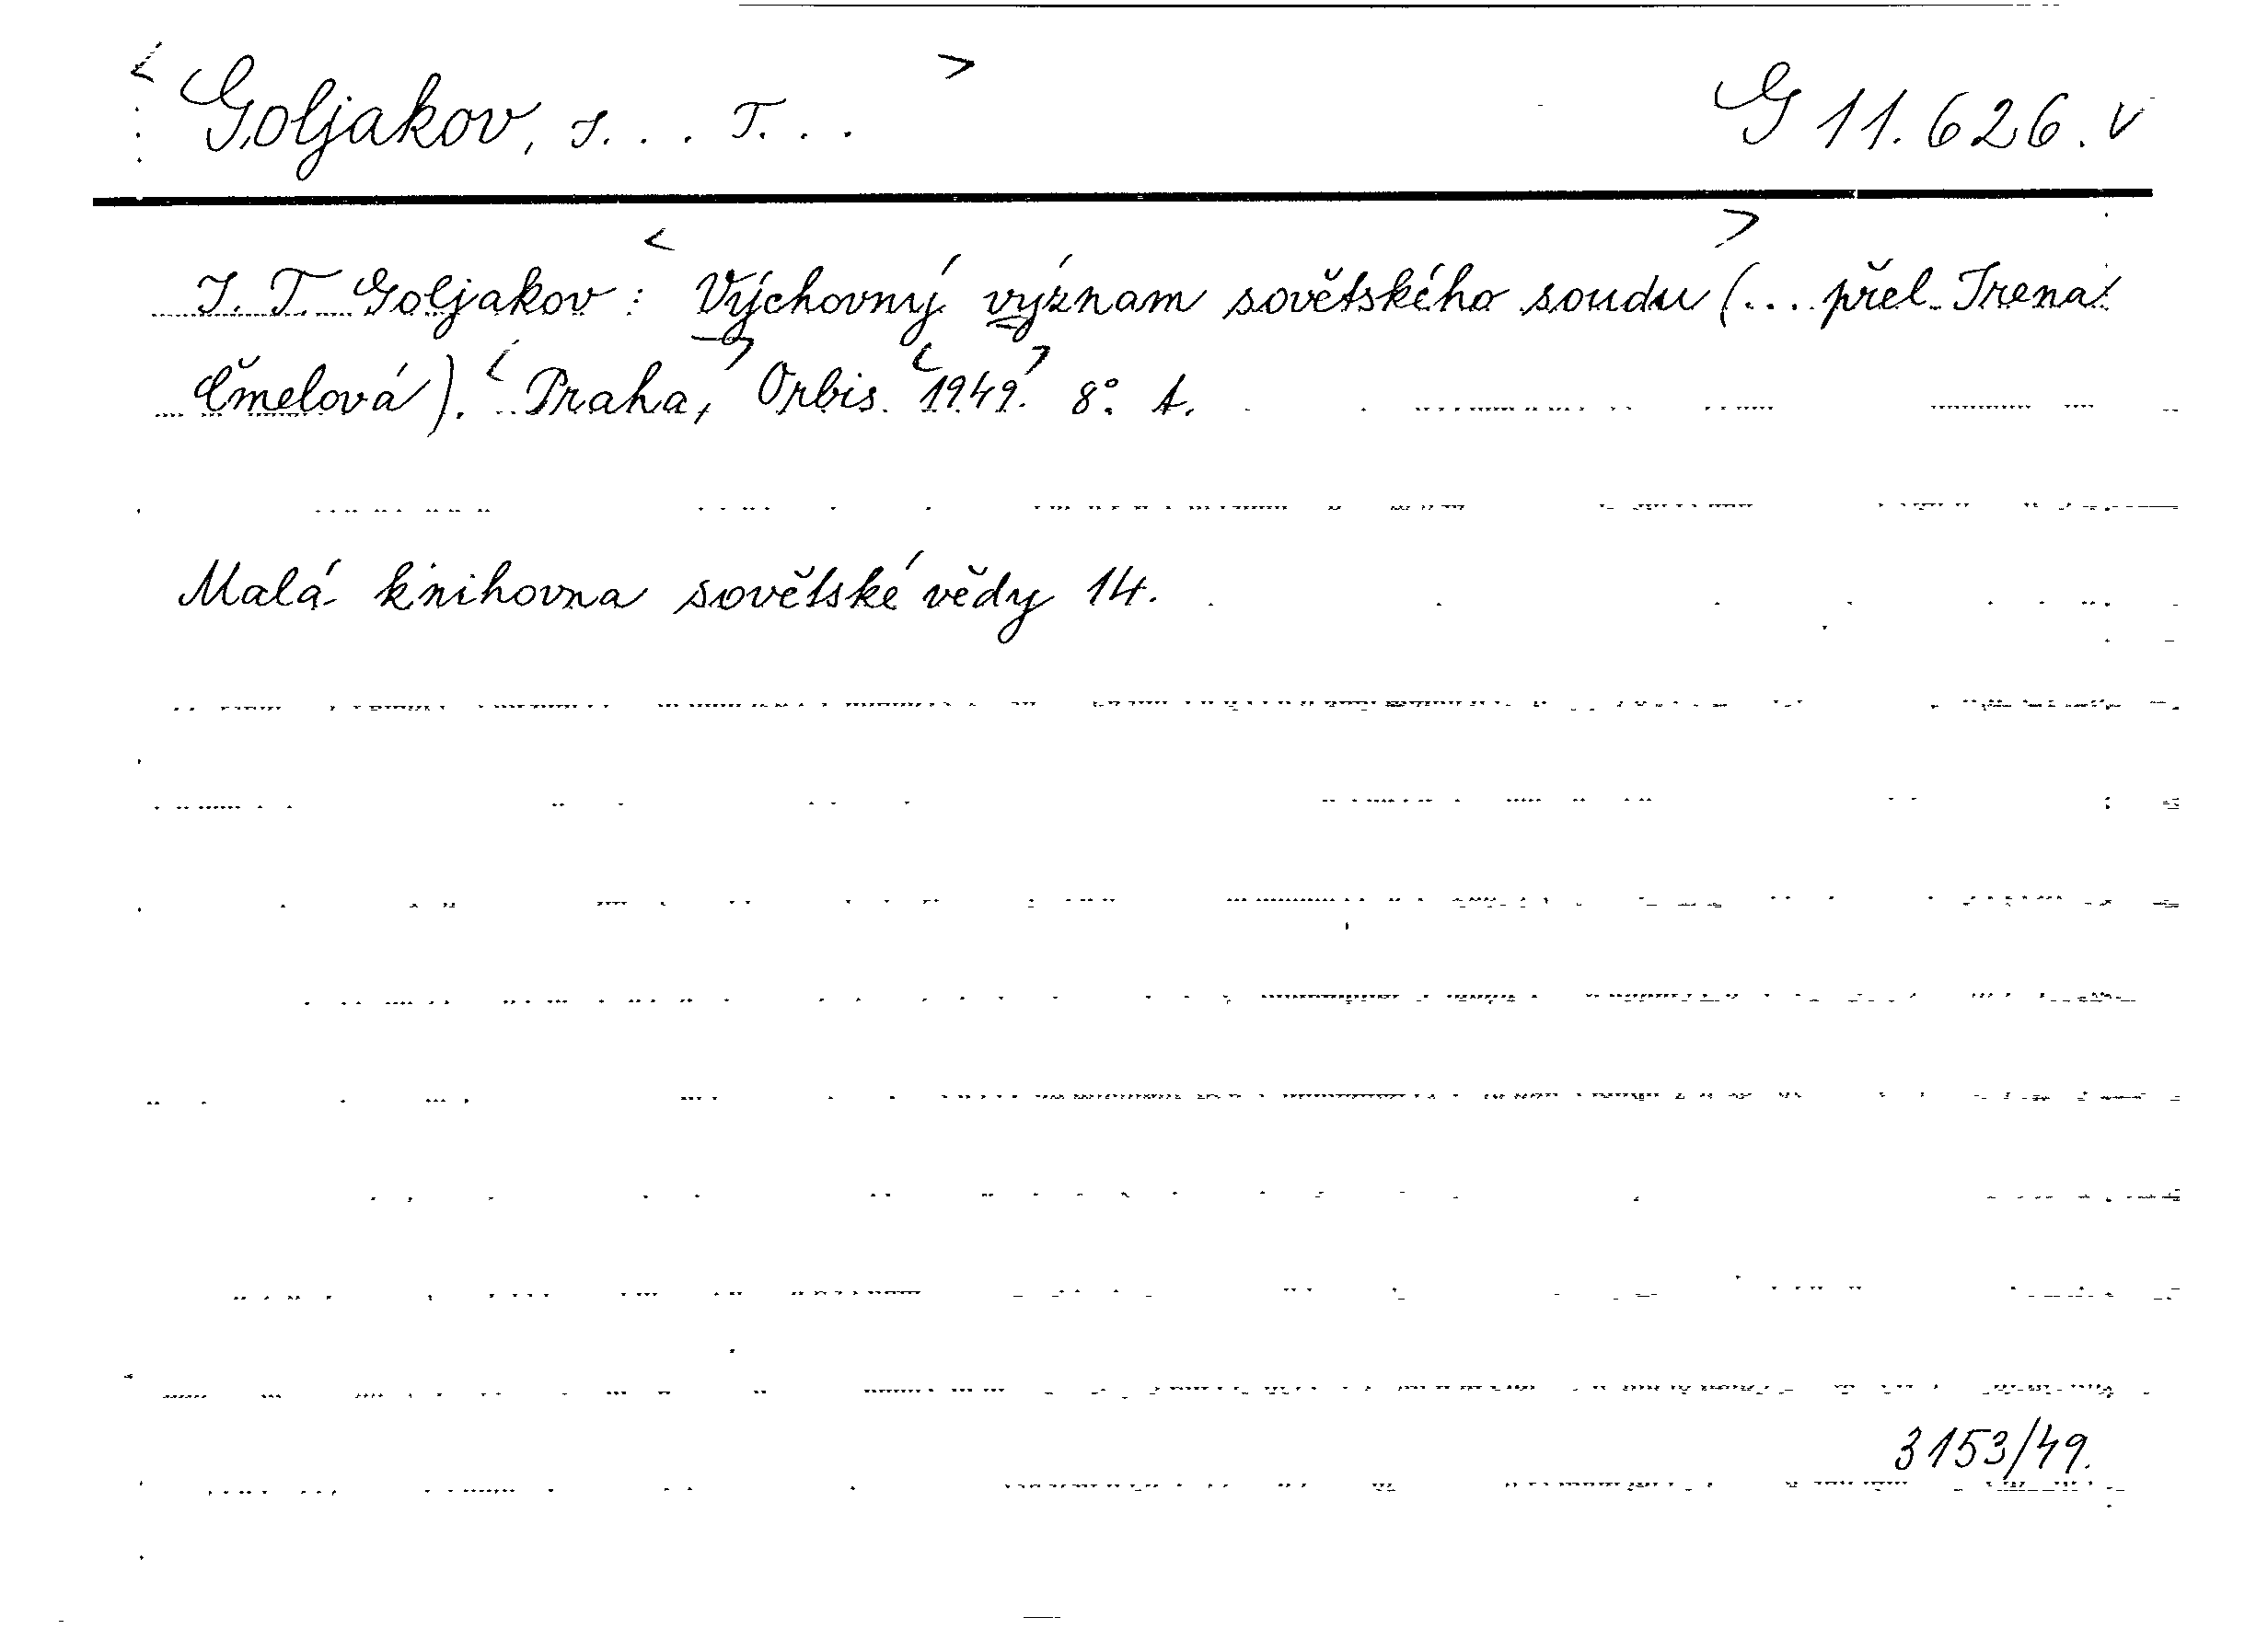 <Goljakov, I... T...> G 11.626.v
I. T. Goljakov: <Výchovný význam sovětského soudu> (... přel. Irena
Čmelová). <Praha,> Orbis. <1949.> 8°. t.
Malá knihovna sovětské vědy 14.
3153/49.